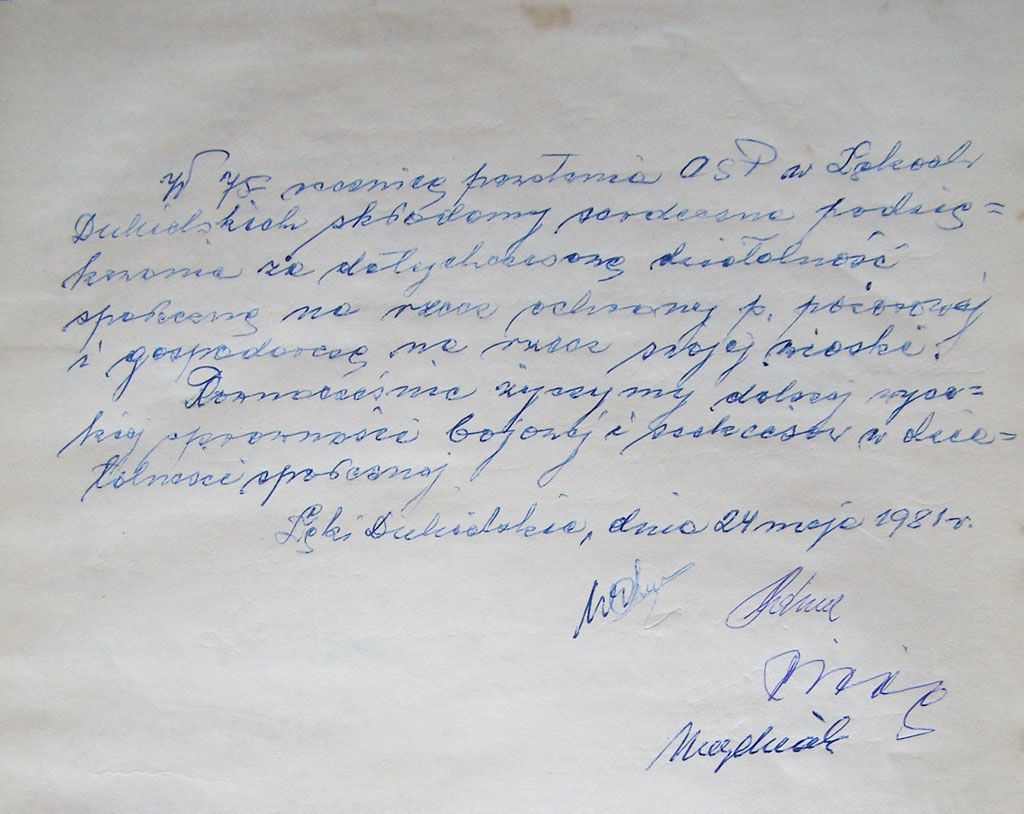 W 75 rocznicę powstania OSP w Łękach
Dukielskich składamy serdeczne podzię=
kowania za dotychczasową działalność
społeczną na rzecz ochrony p. pożarowej
i gospodarczą na rzecz swojej wioski.
Równocześnie życzymy dalszej wyso=
kiej sprawności bojowej i sukcesów w dzia=
łalności społecznej
Łęki Dukielskie, dnia 24 maja 1981 r.